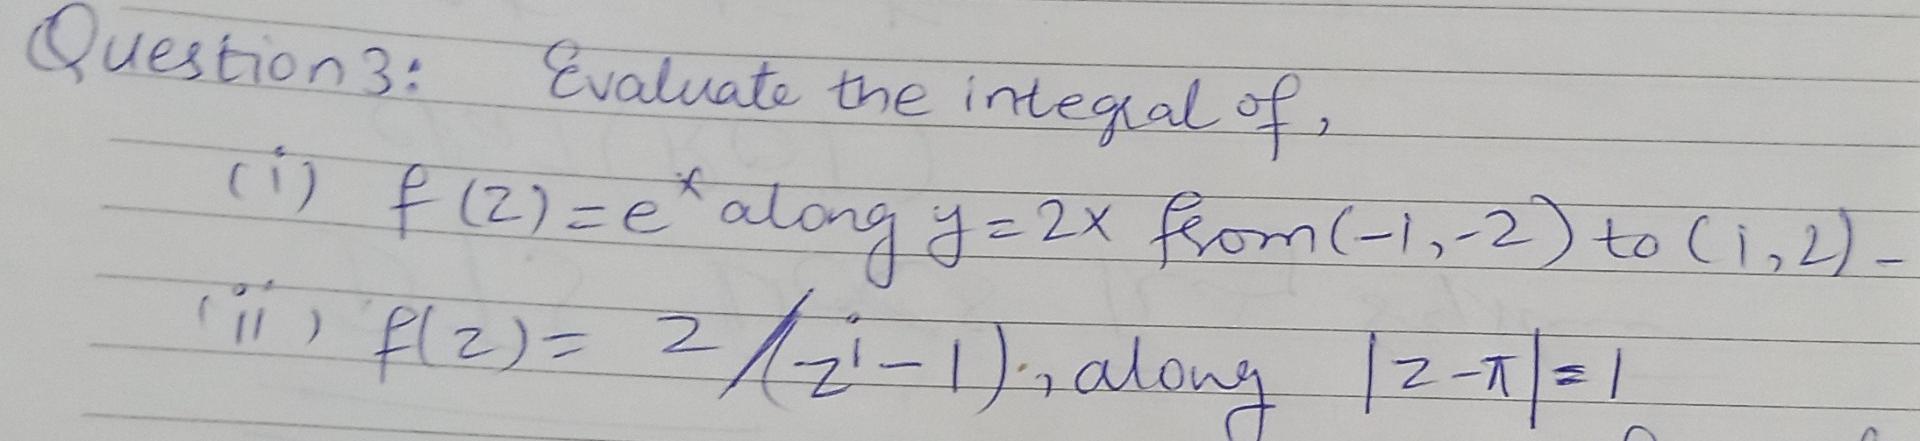 Question 3: Evaluate the integral of,
(i) f(z) = e^x along y = 2x from (-1, -2) to (1, 2) -
(ii) f(z) = z / (z^i - 1), along |z - π| = 1